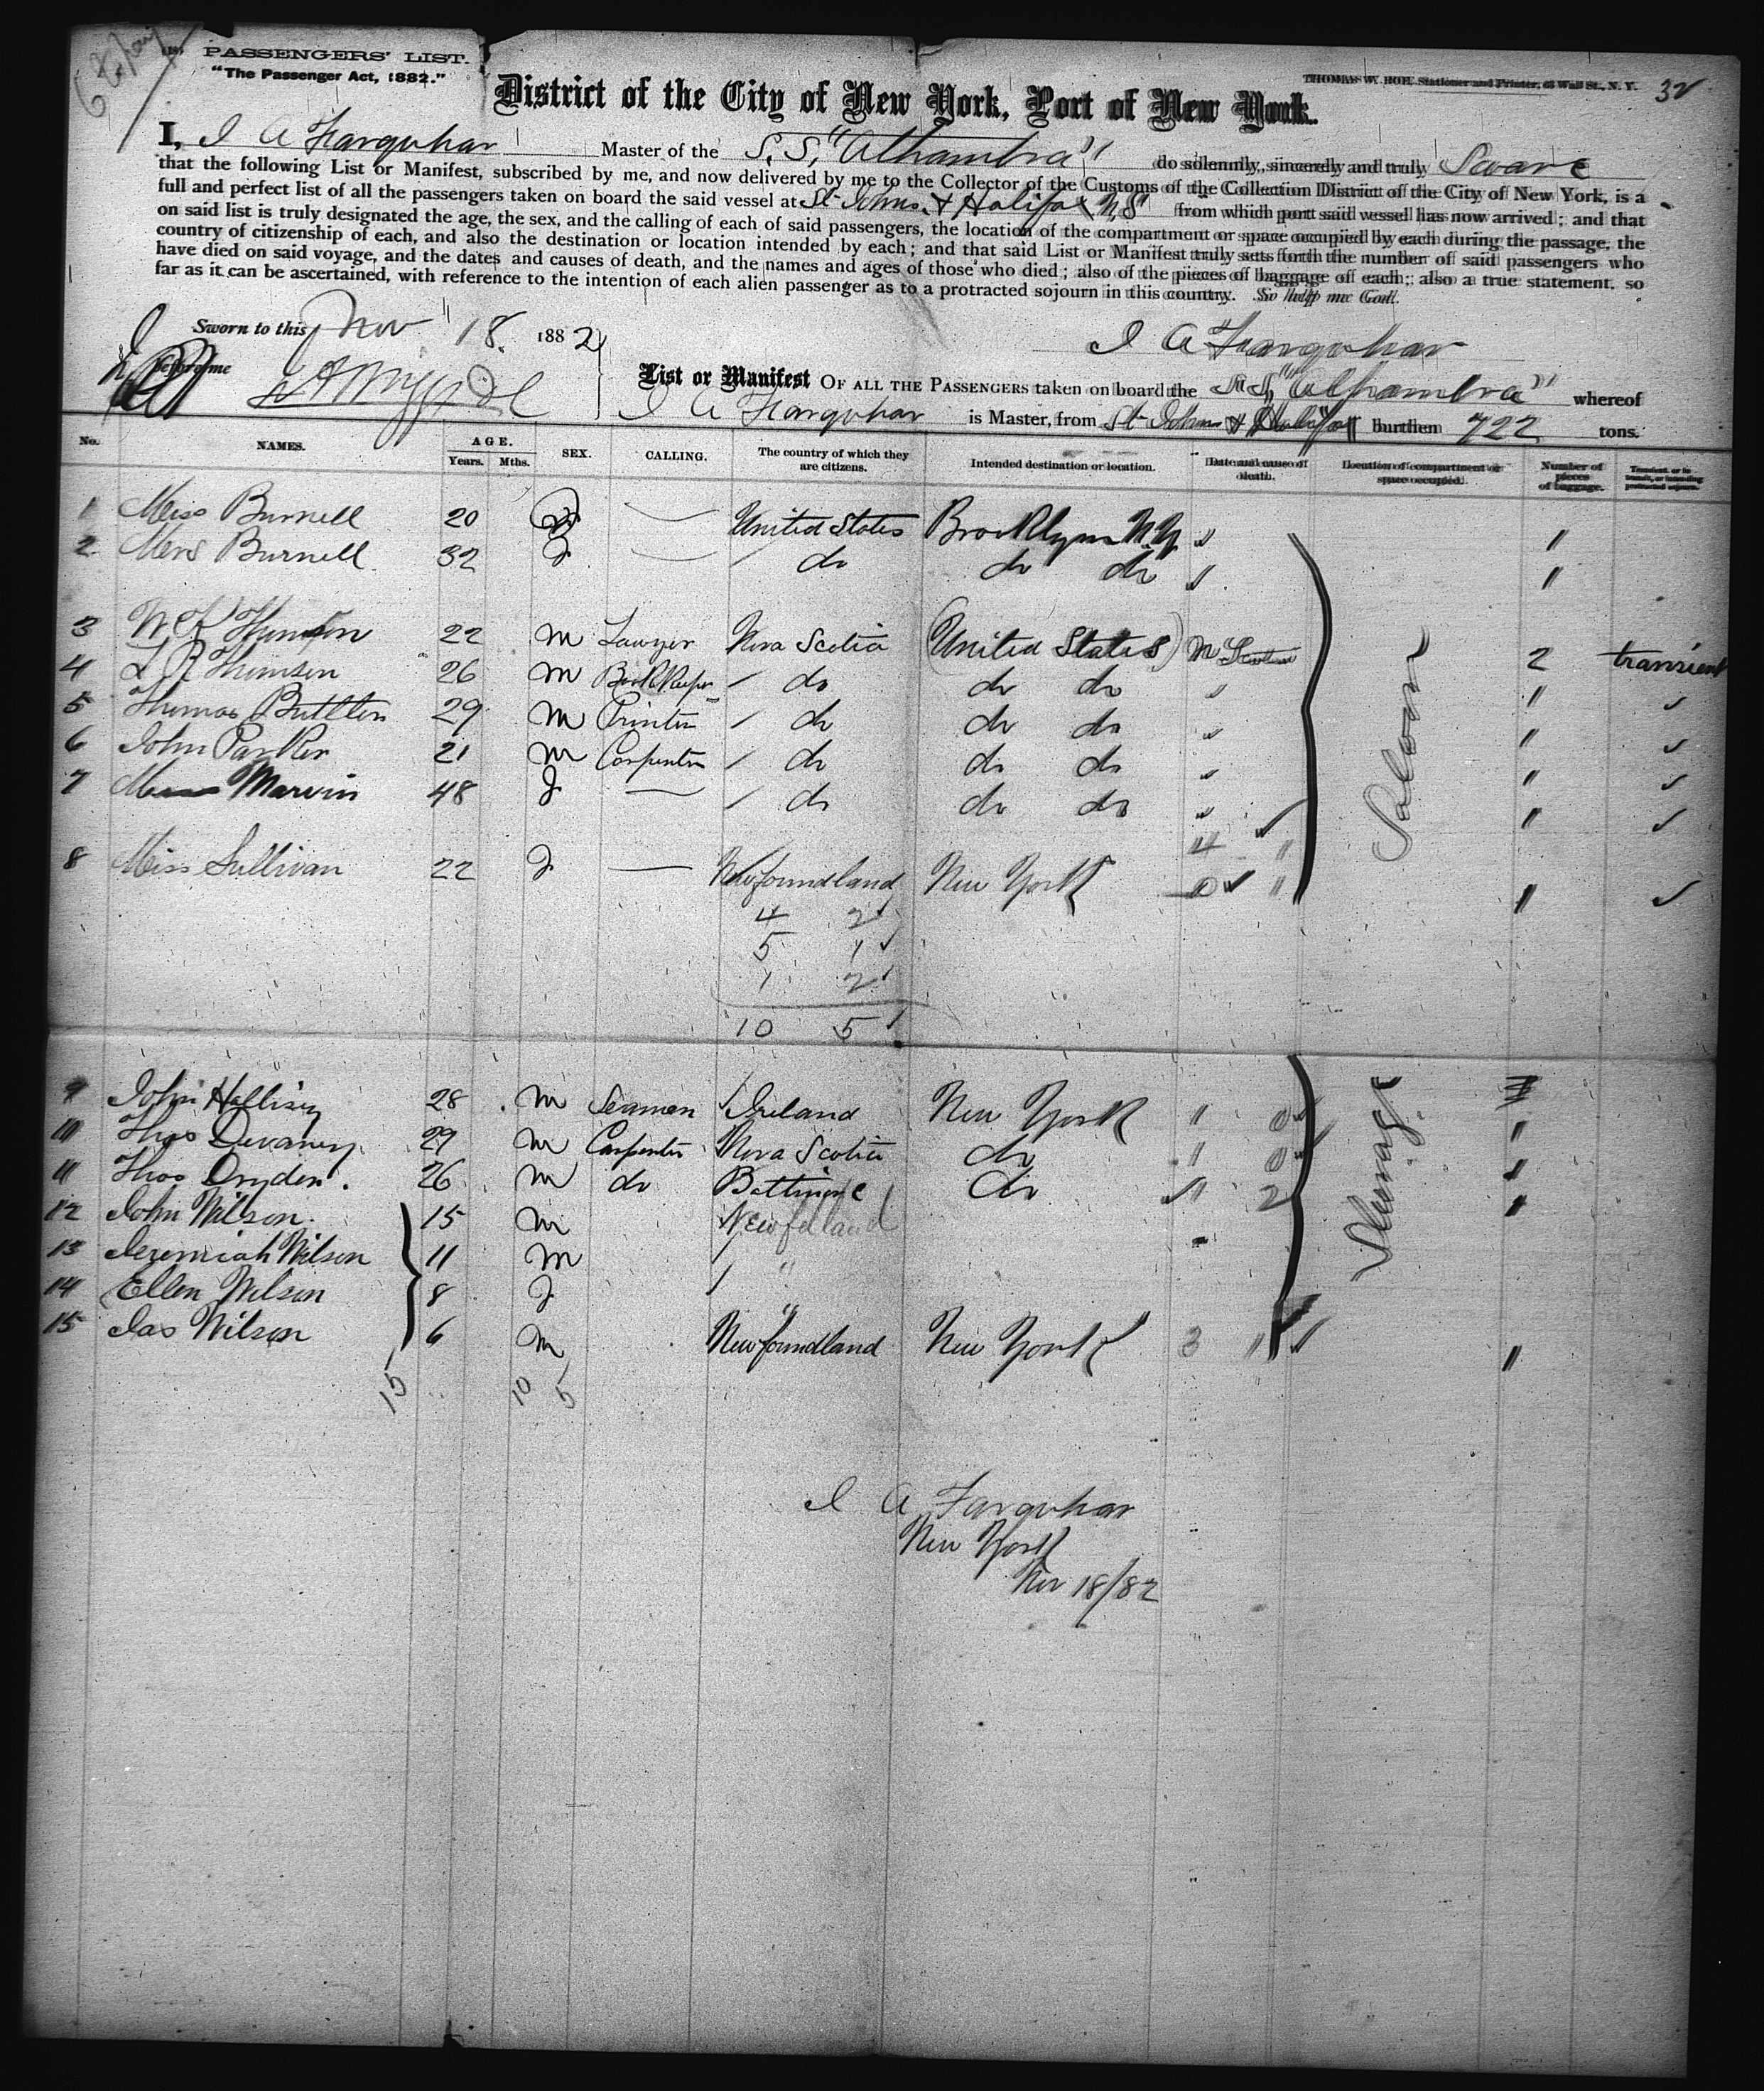 PASSENGERS' LIST.
"The Passenger Act, 1882."
THOMAS W. HOE, Stationer and Printer, 63 Wall St., N. Y. 32
District of the City of New York, Port of New York.
I, I A Farquhar Master of the S. S. "Alhambra" do solemnly, sincerely and truly Swear
that the following List or Manifest, subscribed by me, and now delivered by me to the Collector of the Customs of the Collection District of the City of New York, is a
full and perfect list of all the passengers taken on board the said vessel at St Johns & Halifax N,S from which port said vessel has now arrived; and that
on said list is truly designated the age, the sex, and the calling of each of said passengers, the location of the compartment or space occupied by each during the passage, the
country of citizenship of each, and also the destination or location intended by each; and that said List or Manifest truly sets forth the number of said passengers who
have died on said voyage, and the dates and causes of death, and the names and ages of those who died; also of the pieces of baggage of each; also a true statement, so
far as it can be ascertained, with reference to the intention of each alien passenger as to a protracted sojourn in this country. So Help me God.
Sworn to this Nov 18. 1882
before me
I A Farquhar
List or Manifest OF ALL THE PASSENGERS taken on board the S.S. "Alhambra" whereof
I A Farquhar is Master, from St Johns & Halifax burthen 722 tons.
No. NAMES. AGE. Years. Mths. SEX. CALLING. The country of which they are citizens. Intended destination or location. Date and cause of death. Location of compartment or space occupied. Number of pieces of baggage. Transient, or in transit, or intending protracted sojourn.
1 Miss Burnell 20 f — United States Brooklyn N.Y. " "
2 Mrs Burnell 32 f — do do do " "
3 Thomson 22 m Lawyer Nova Scotia (United States) 2 transient
4 L R Thomson 26 m BookKeeper do do do " "
5 Thomas Buttler 29 m Printer do do do " "
6 John Parker 21 m Carpenter do do do " "
7 Marvin 48 f — do do do " "
8 Miss Sullivan 22 f — Newfoundland New York "
Saloon
4 2
5 1
1 2
10 5
9 John Hallisey 28 m Seaman Ireland New York " 0
10 Thos Devaney 29 m Carpenter Nova Scotia do " 0 "
11 Thos Dryden. 26 m do Baltimore do " 2 "
12 John Wilson. 15 m Newfdland "
13 Jeremiah Wilson 11 m "
14 Ellen Wilson 8 f "
15 Jas Wilson 6 m Newfoundland New York 3 " "
Steerage
15 10 5
I A Farquhar
New York
Nov 18/82